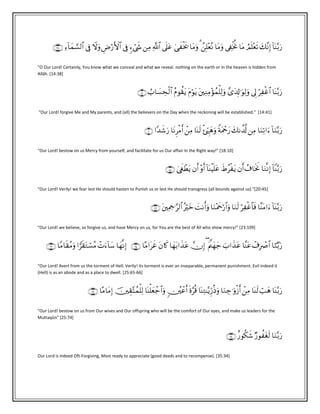 رَبَّنَآ إِنَّكَ تَعْلَمُ مَا نُخْفِى وَمَا نُعْلِنُ ۗ وَمَا يَخْفَىٰ عَلَى ٱللَّهِ مِن شَىْءٍ فِى ٱلْأَرْضِ وَلَا فِى ٱلسَّمَآءِ ﴿٣٨﴾
"O Our Lord! Certainly, You know what we conceal and what we reveal. nothing on the earth or in the heaven is hidden from
Allâh. [14:38]
رَبَّنَا ٱغْفِرْ لِى وَلِوَٰلِدَىَّ وَلِلْمُؤْمِنِينَ يَوْمَ يَقُومُ ٱلْحِسَابُ ﴿٤١﴾
"Our Lord! forgive Me and My parents, and (all) the believers on the Day when the reckoning will be established." [14:41]
رَبَّنَآ ءَاتِنَا مِن لَّدُنكَ رَحْمَةً وَهَيِّئْ لَنَا مِنْ أَمْرِنَا رَشَدًا ﴿١٠﴾
"Our Lord! bestow on us Mercy from yourself, and facilitate for us Our affair In the Right way!" [18:10]
رَبَّنَآ إِنَّنَا نَخَافُ أَن يَفْرُطَ عَلَيْنَآ أَوْ أَن يَطْغَىٰ ﴿٤٥﴾
"Our Lord! Verily! we fear lest He should hasten to Punish us or lest He should transgress (all bounds against us)."[20:45]
رَبَّنَآ ءَامَنَّا فَٱغْفِرْ لَنَا وَٱرْحَمْنَا وَأَنتَ خَيْرُ ٱلرَّٰحِمِينَ ﴿١٠٩﴾
"Our Lord! we believe, so forgive us, and have Mercy on us, for You are the best of All who show mercy!" [23:109]
رَبَّنَا ٱصْرِفْ عَنَّا عَذَابَ جَهَنَّمَ ۖ إِنَّ عَذَابَهَا كَانَ غَرَامًا ﴿٦٥﴾ إِنَّهَا سَآءَتْ مُسْتَقَرًّا وَمُقَامًا ﴿٦٦﴾
"Our Lord! Avert from us the torment of Hell. Verily! its torment is ever an inseparable, permanent punishment. Evil indeed it
(Hell) is as an abode and as a place to dwell. [25:65-66]
رَبَّنَا هَبْ لَنَا مِنْ أَزْوَٰجِنَا وَذُرِّيَّٰتِنَا قُرَّةَ أَعْيُنٍ وَٱجْعَلْنَا لِلْمُتَّقِينَ إِمَامًا ﴿٧٤﴾
"Our Lord! bestow on us from Our wives and Our offspring who will be the comfort of Our eyes, and make us leaders for the
Muttaqûn" [25:74]
رَبَّنَا لَغَفُورٌ شَكُورٌ ﴿٣٤﴾
Our Lord is indeed Oft-Forgiving, Most ready to appreciate (good deeds and to recompense). [35:34]